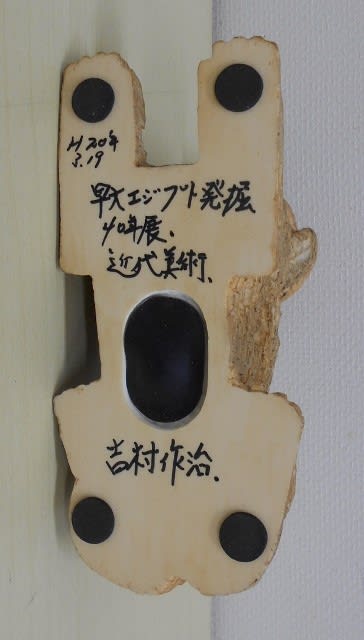 H20年
3.19
早大エジプト発掘
40年展.
近代美術.
吉村作治.